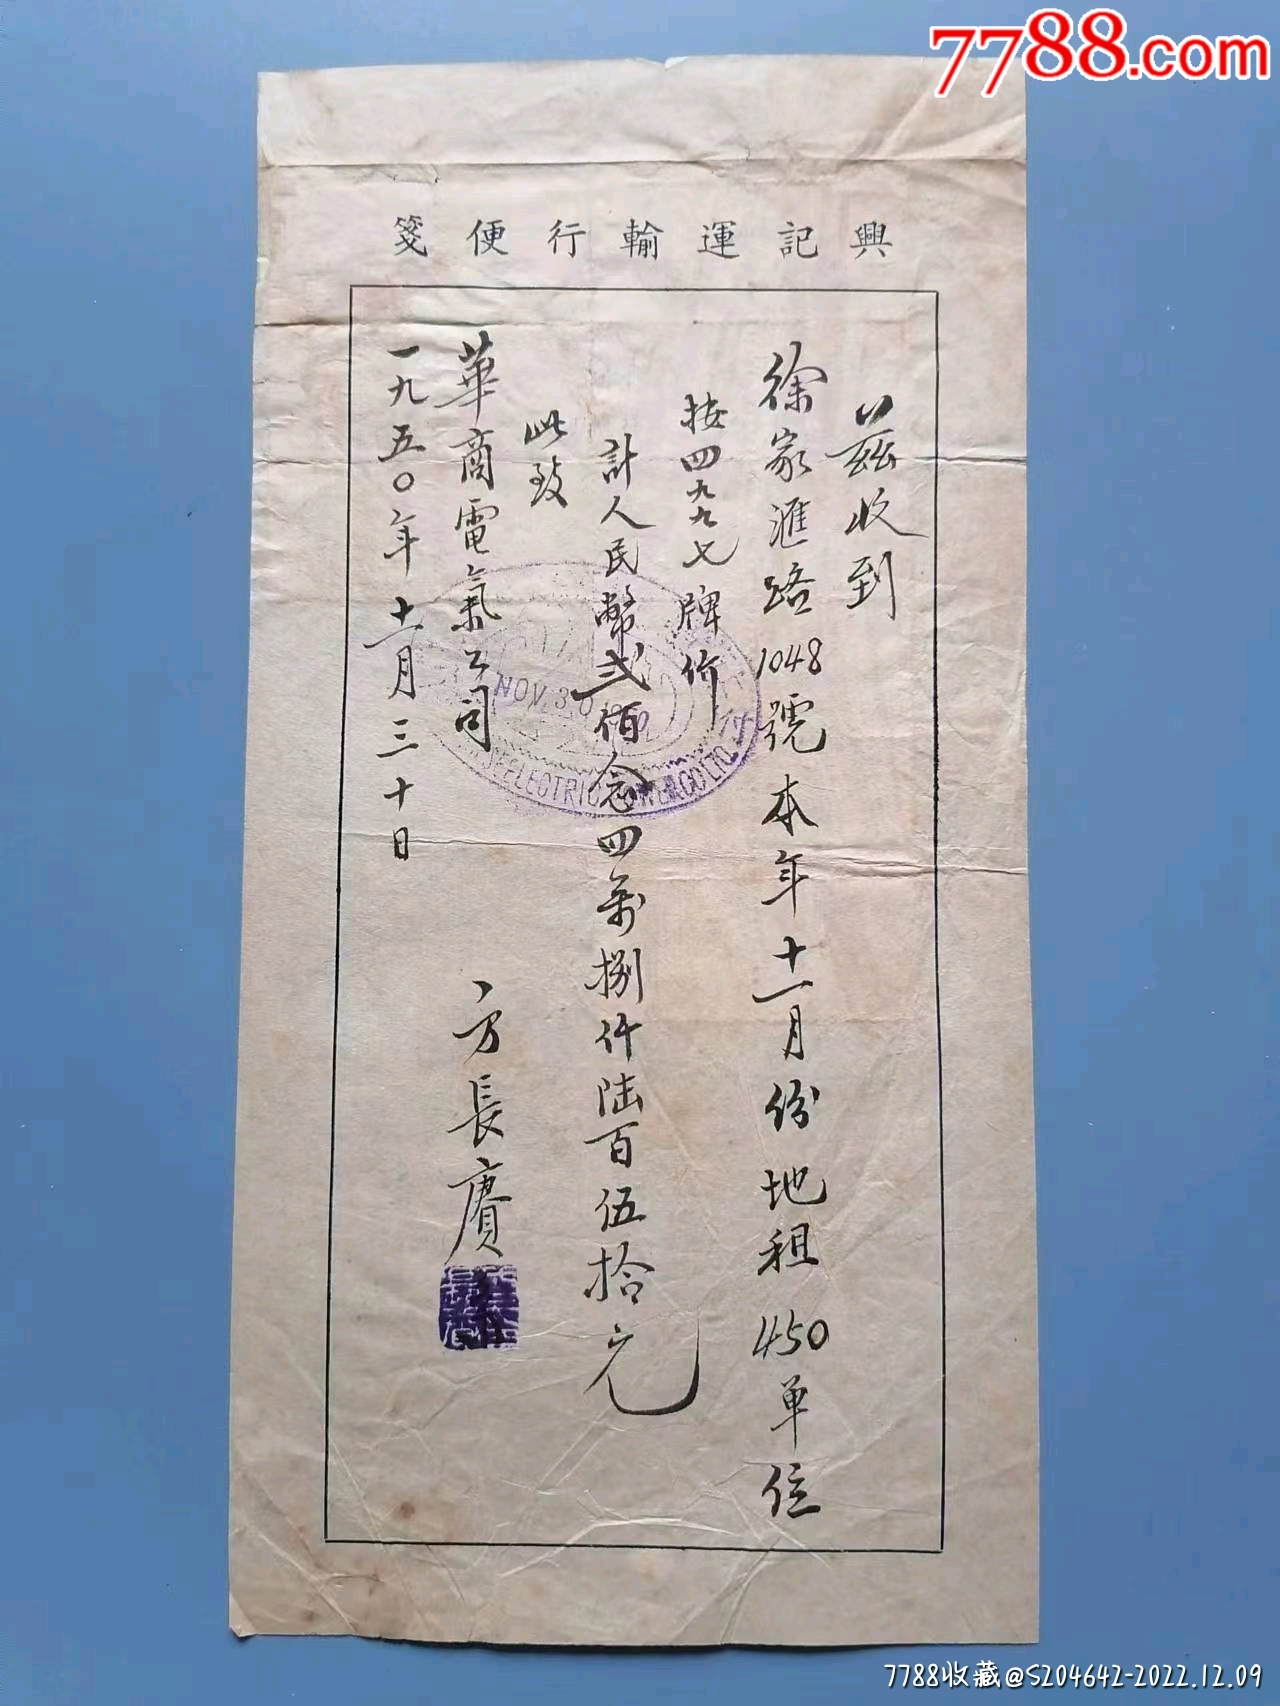 7788.com
興記運輸行便箋
茲收到
徐家滙路1048號本年十一月份地租450單位
按四九九七牌價
計人民幣弍佰念四萬捌仟陸百伍拾元
此致
華商電氣公司
方長賡
一九五〇年十一月三十日
NOV. 30
ELECTRIC POWER CO LTD.
7788收藏@S204642-2022.12.09